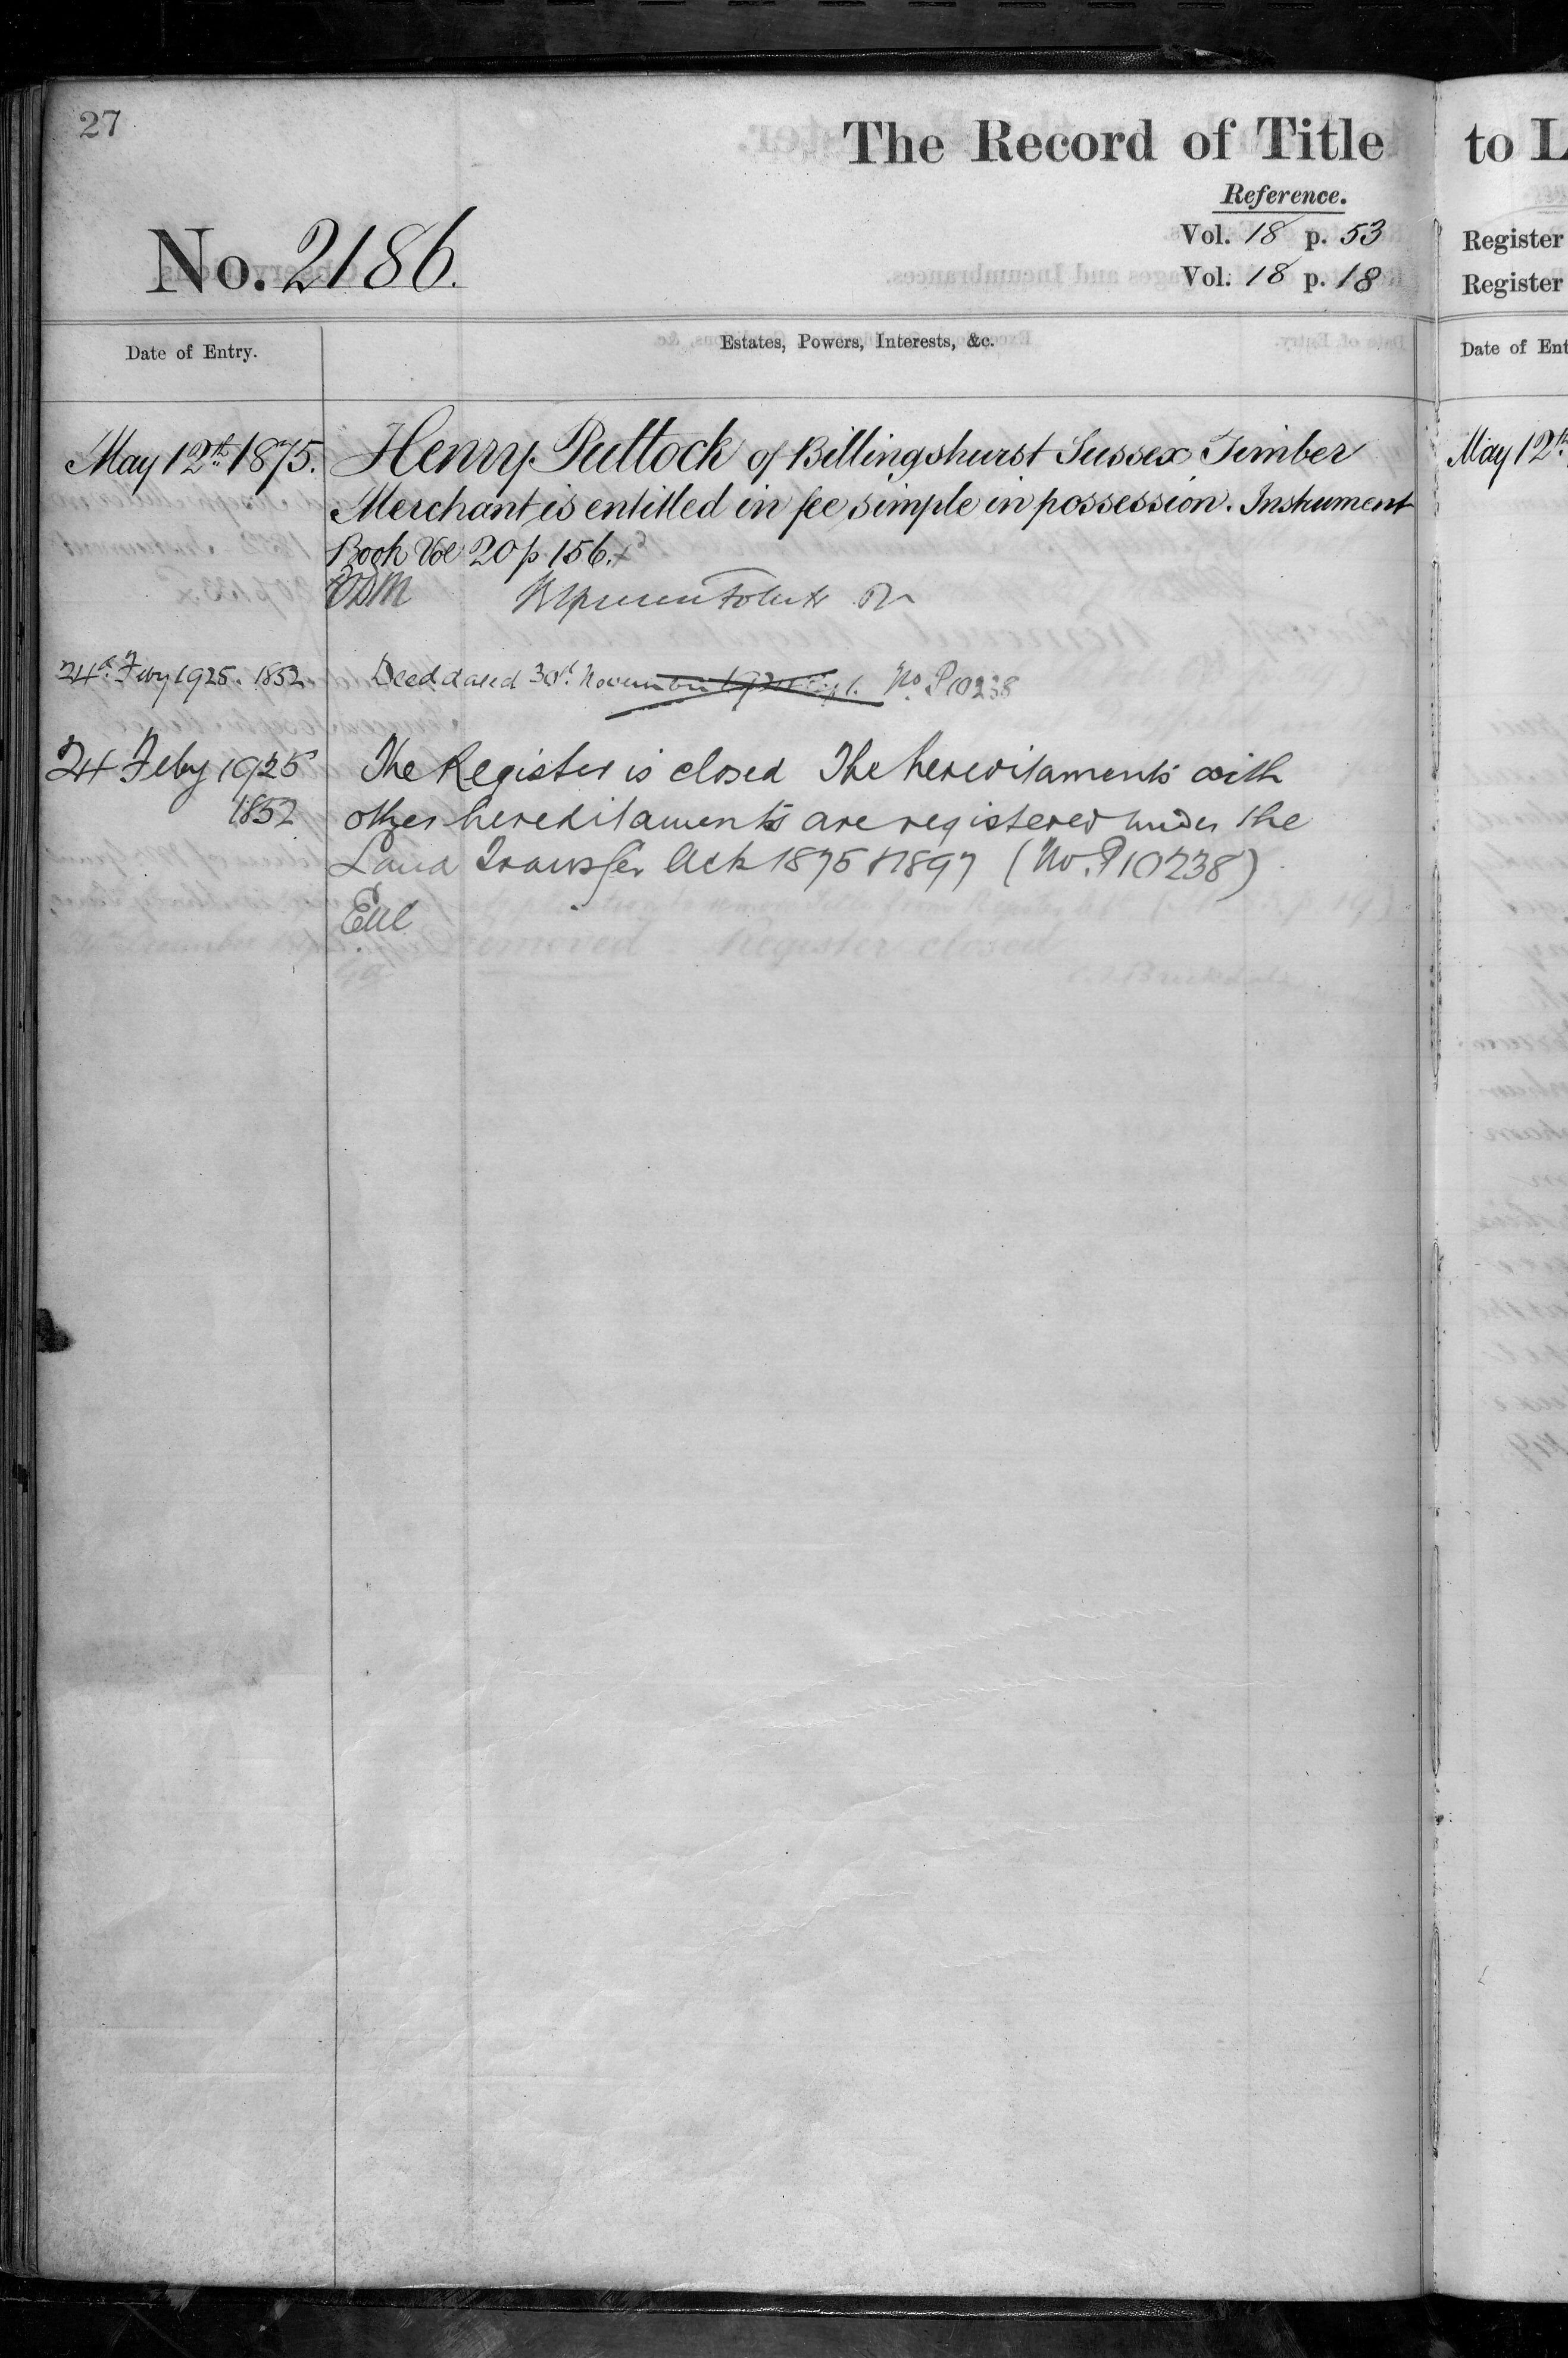 27
The Record of Title
to L
Reference.
No. 2186.
Vol. 18 p. 53
Register
Vol. 18 p. 18
Register
Date of Entry.
Estates, Powers, Interests, &c.
Date of Ent
May 12th 1875.
Henry Puttock of Billingshurst Sussex Timber
May 12th
Merchant is entitled in fee simple in possession. Instrument
Book Vol 20 p 156.
24th Feby 1925. 1852
Deed dated 30th November No. P10238
24 Feby 1925
The Register is closed The hereditaments with
1852
other hereditaments are registered under the
Land Transfer Acts 1875 & 1897 (No. P10238)